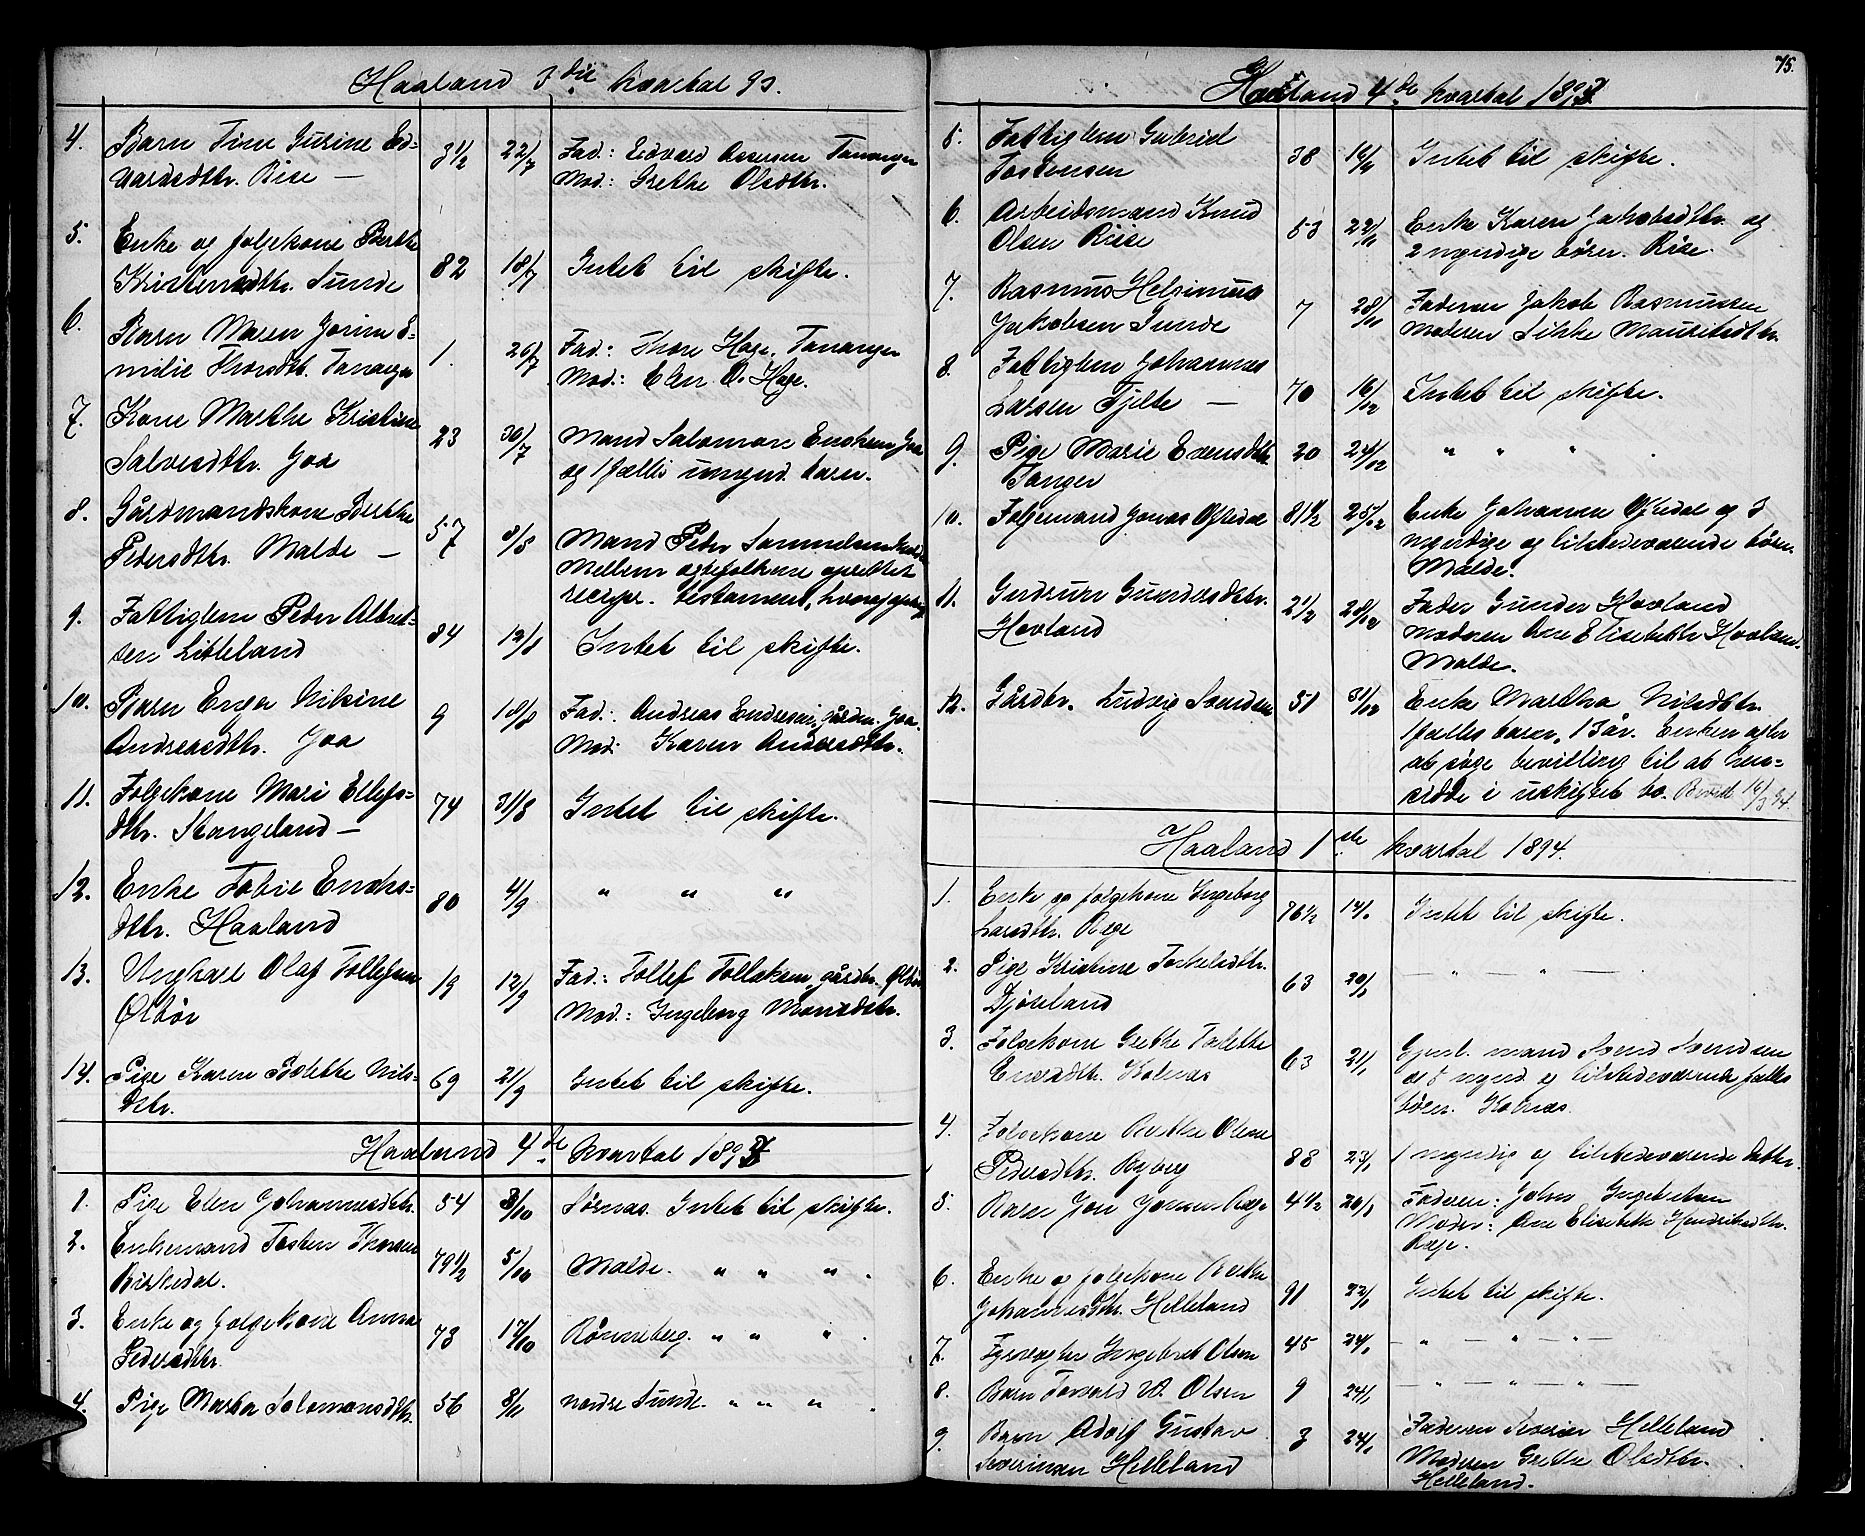 Haaland 3die kvartal 93.
4. Barn Tine Gurine Ed-
vardsdtr. Rise — 3 1/2 22/7 Fad.: Edvard Assersen Tananger
Mod.: Grethe Olsdtr.
5. Enke og folgekone Berthe
Kristensdtr. Sunde 82 18/7 Intet til skifte.
6. Barn Maren Jorine E-
milie Thorsdtr. Tananger 1. 26/7 Fad.: Thore Hage. Tananger
Mod.: Elen O. Hage.
7. Kone Marthe Kristine
Salvesdtr. Goa 23 30/7 Mand Salomon Goa
og 1 fælles umynd. barn.
8. Gårdmandskone Berthe
Pedersdtr. Malde — 57 8/8 Mand Peder Sammelsen
Mellem ægtefolkene oprettet
recipr. testament,
9. Fattiglem Peder Albret-
sen Litleland 84 12/8 Intet til skifte.
10. Barn Enger Nilsine
Andreasdtr. Goa 9 18/8 Fad.: Andreas Endresen, gårdm. Goa.
Mod: Karen Andersdtr.
11. Folgekone Mari Ellefs-
dtr. Stangeland — 74 31/8 Intet til skifte.
12. Enke Tobie Enoks-
dtr. Haaland 80 4/9 " " "
13. Ungkarl Olaf Tollefsen
Ølbör 19 12/9 Fad.: Tollef Tollaksen, gårdbr. Ølbör
Mod.: Ingeborg Monsdtr.
14. Pige Karen Bolette Nils-
dtr. 69 21/9 Intet til skifte.
Haaland 4de kvartal 1893
1. Pige Elen Johannesdtr. 54 3/10 Sörnæs. Intet til skifte.
2. Enkemand Tosten Thorsen
Birkedal. 79 1/2 5/10 Malde. " " " .
3. Enke og folgekone Anna
Pedersdtr. 73 17/10 Rönneberg. " " " .
4. Pige Marta Salomonsdtr. 56 8/11 nordre Sunde. " " " .
75.
Haaland 4de kvartal 1893
5. Fattiglem Gabriel
Tostensen 38 14/11 Intet til skifte.
6. Arbeidsmand Knud
Olsen Riise 53 22/11 Enke Karen Jakobsdtr. og
2 myndige börn. Rise.
7. Rasmus Helsimus
Jakobsen Sunde 7 28/11 Faderen Jakob Rasmussen
Moderen Sikke Mauritsdtr.
8. Fattiglem Johannes
Larsen Tjelte — 70 16/12 Intet til skifte.
9. Pige Marie Evensdtr.
Tanger 20 24/12 " " " .
10. Folgemand Jonas Oftedal 81 1/2 25/12 Enke Johanne Oftedal og 3
myndige og tilstedeværende börn.
Malde.
11. Gudrun Gundersdtr.
Hovland 2 1/2 28/12 Fader Gunder Hovland
moderen Ane Elisabeth Hovland.
Malde.
12. Gårdbr. Ludvig Svendsen 51 31/12 Enke Martha Nilsdtr.
1 fælles barn, 13 år. Enken agter
at söge bevilling til at hen-
sidde i uskiftet bo. Bevill 14/3 94.
Haaland 1ste kvartal 1894.
1. Enke og fölgekone Ingeborg
Larsdtr. Rege 76 1/2 Intet til skifte.
2. Pige Kristine Torkelsdtr.
Djöseland 63 20/1 — " — " —
3. Folgekone Grethe Tolette
Enoksdtr. Kolnæs 63 21/1 Gjenl. mand Svend Svendsen
og 5 mynd. og tilstedeværende fælles
börn. Kolnæs.
4. Folgekone Berthe Oline
Pedersdtr. Ryberg 88 23/1 1 myndig og tilstedeværende datter.
5. Barn Jon Jonsen Rege 4 1/2 20/1 Faderen: John Ingebretsen
Moder: Ane Elisabeth Hendriksdtr.
Rege.
6. Enke og folgekone Berthe
Johannesdtr. Helleland 91 22/1 Intet til skifte.
7. Fyrvogter Ingebret Olsen 45 24/1 — " — " — " —
8. Barn Torvald W. Olsen 9 24/1 — " — " — " —
9. Barn Adolf Gustav
Severinsen Helleland 3 24/1 Faderen Severin Helleland
Moderen Grethe Olsdtr.
Helleland.